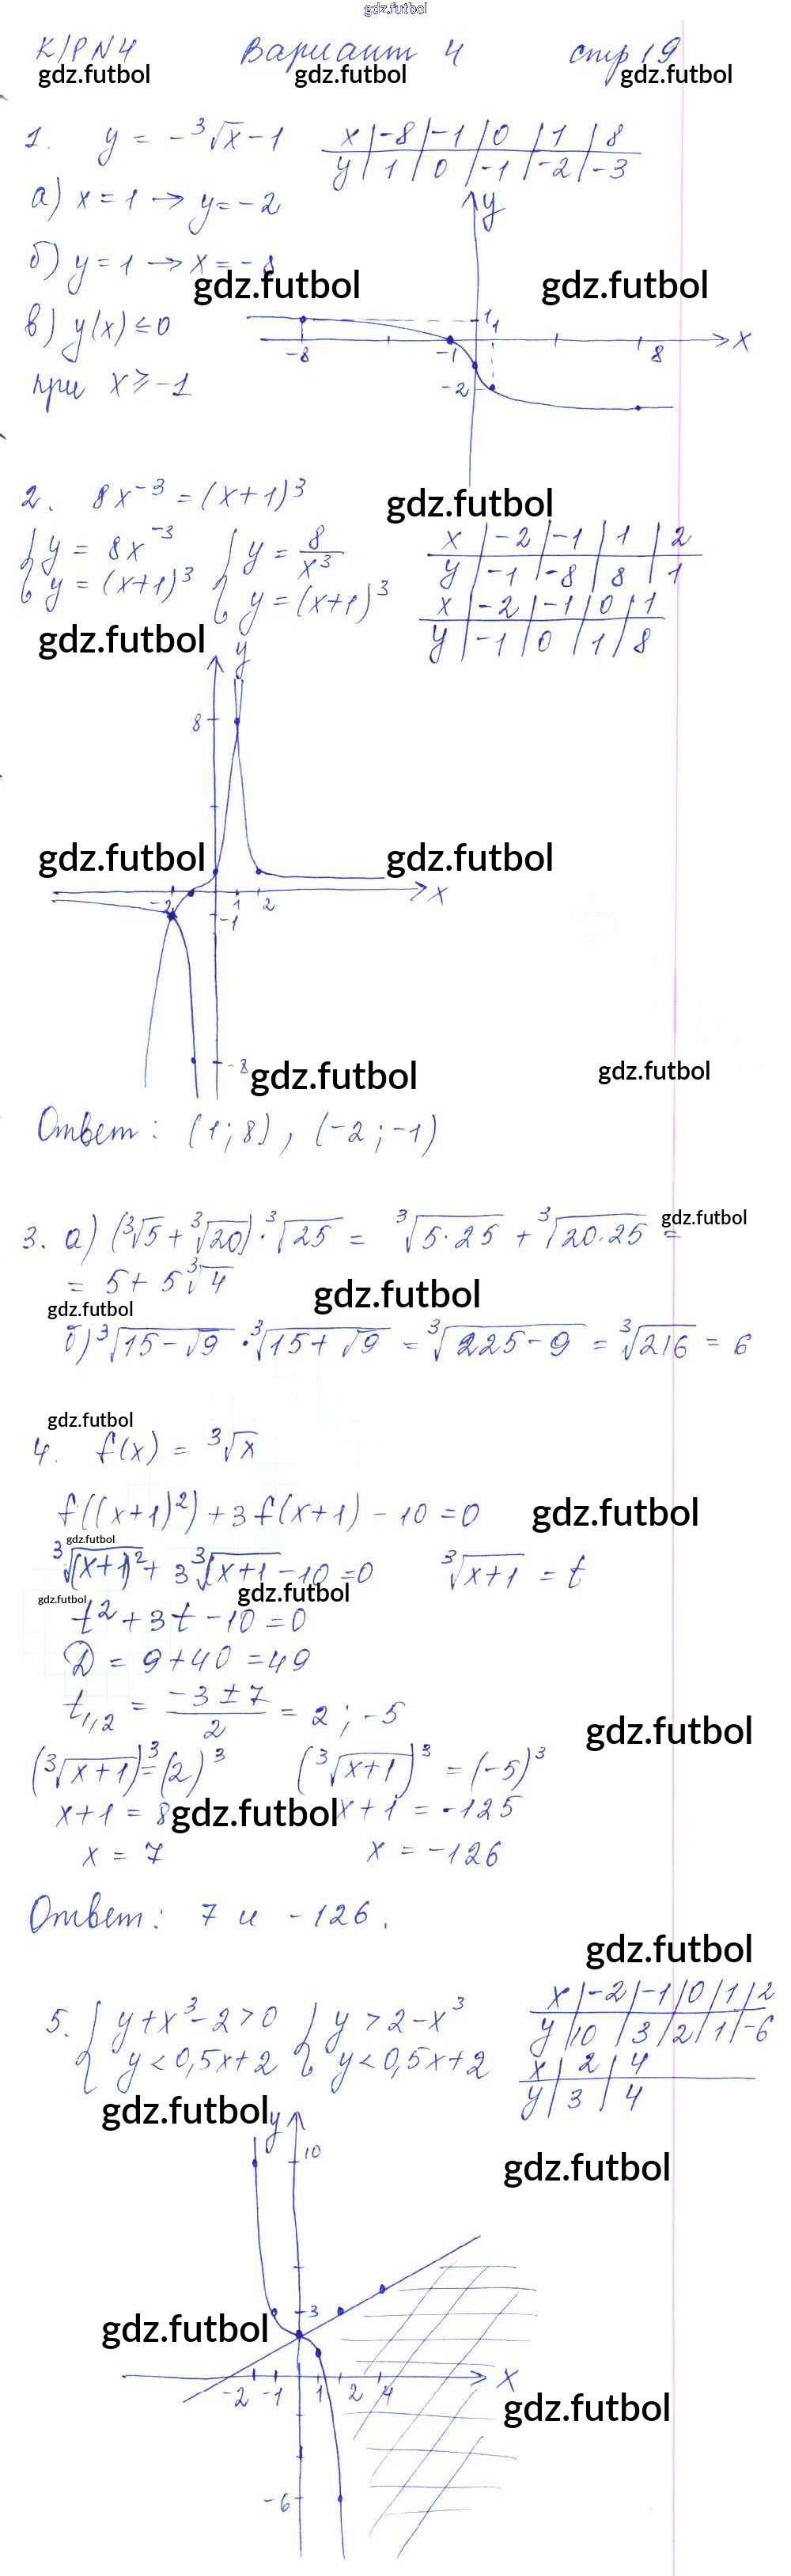 gdz.futbol
К/Р N4 Вариант 4 стр 19
gdz.futbol gdz.futbol gdz.futbol
1. y = -³√x - 1
x | -8 | -1 | 0 | 1 | 8
y | 1 | 0 | -1 | -2 | -3
а) x = 1 → y = -2
б) y = 1 → x = -8
gdz.futbol gdz.futbol
в) y(x) ≤ 0
при x ≥ -1
y
1 1
-8 -1 8 x
-2
2. 8x⁻³ = (x+1)³
gdz.futbol
{ y = 8x⁻³ { y = 8/x³
{ y = (x+1)³ { y = (x+1)³
x | -2 | -1 | 1 | 2
y | -1 | -8 | 8 | 1
x | -2 | -1 | 0 | 1
y | -1 | 0 | 1 | 8
gdz.futbol
y
8
gdz.futbol gdz.futbol
-2 1 2 x
-1
-8
gdz.futbol gdz.futbol
Ответ: (1; 8), (-2; -1)
3. а) (³√5 + ³√20) · ³√25 = ³√5·25 + ³√20·25 =
gdz.futbol
= 5 + 5³√4
gdz.futbol
gdz.futbol
б) ³√15-√9 · ³√15+√9 = ³√225-9 = ³√216 = 6
gdz.futbol
4. f(x) = ³√x
f((x+1)²) + 3f(x+1) - 10 = 0
gdz.futbol
gdz.futbol
³√(x+1)² + 3³√x+1 - 10 = 0 ³√x+1 = t
gdz.futbol gdz.futbol
t² + 3t - 10 = 0
D = 9 + 40 = 49
t₁,₂ = (-3 ± 7)/2 = 2; -5
gdz.futbol
(³√x+1)³ = (2)³ (³√x+1)³ = (-5)³
x+1 = 8 x+1 = -125
gdz.futbol
x = 7 x = -126
Ответ: 7 и -126.
gdz.futbol
5. { y + x³ - 2 > 0 { y > 2 - x³
{ y < 0,5x + 2 { y < 0,5x + 2
x | -2 | -1 | 0 | 1 | 2
y | 10 | 3 | 2 | 1 | -6
x | 2 | 4
y | 3 | 4
gdz.futbol
y
10
gdz.futbol
3
gdz.futbol
-2 -1 1 2 4 x
gdz.futbol
-6